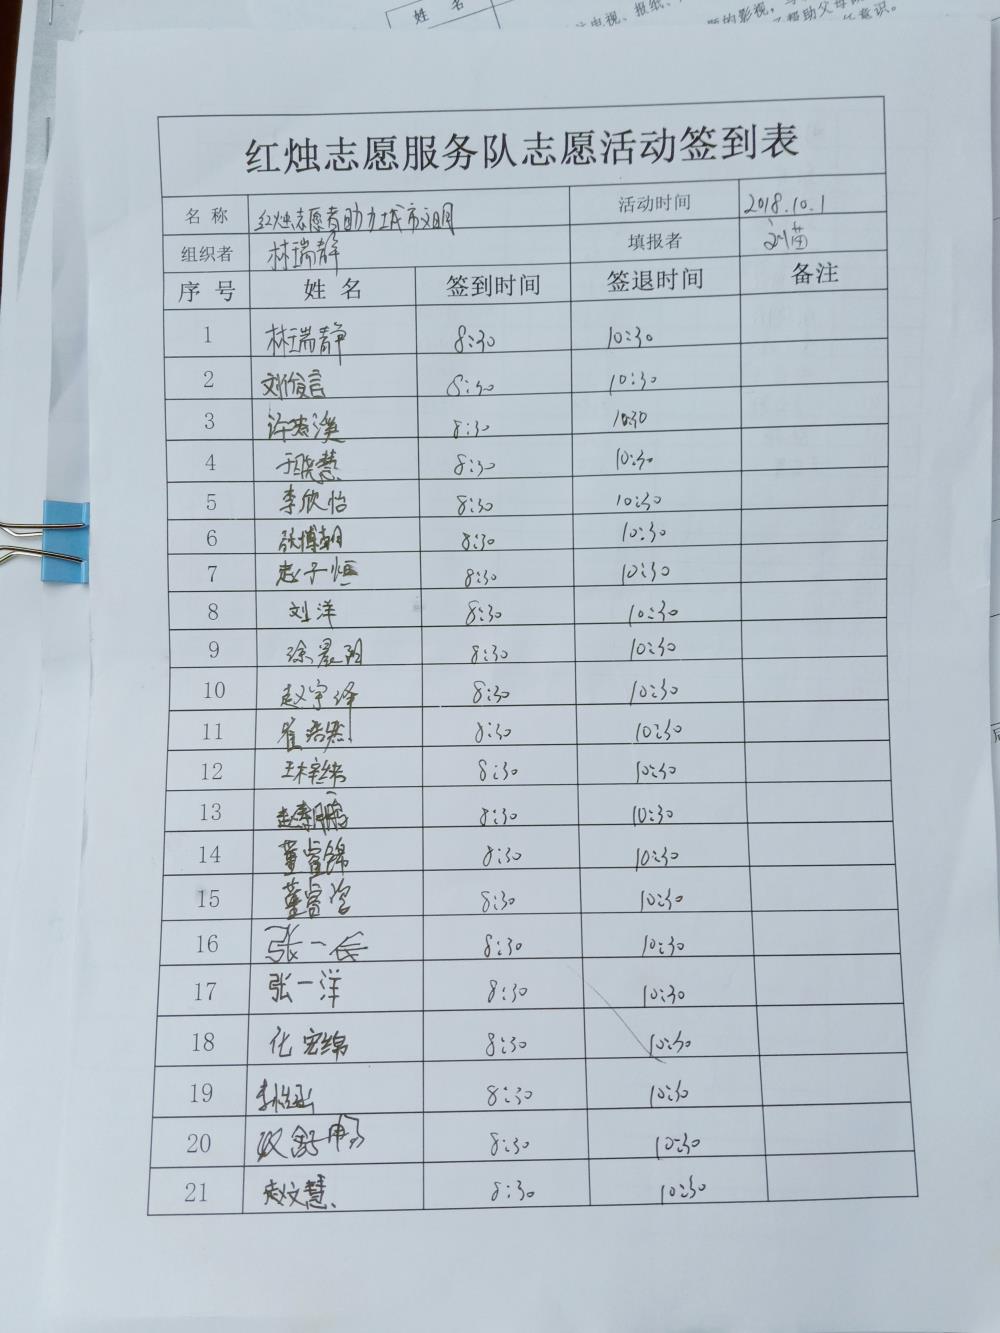 姓 名
红烛志愿服务队志愿活动签到表
名 称 红烛志愿者助力城市文明 活动时间 2018.10.1
组织者 林瑞静 填报者 刘苗
序 号 姓 名 签到时间 签退时间 备注
1 林瑞静 8:30 10:30
2 刘俊言 8:30 10:30
3 8:30 10:30
4 于晓慧 8:30 10:30
5 李欣怡 8:30 10:30
6 张博朝 8:30 10:30
7 赵子恒 8:30 10:30
8 刘洋 8:30 10:30
9 徐晨阳 8:30 10:30
10 赵宇泽 8:30 10:30
11 崔浩然 8:30 10:30
12 王梓纬 8:30 10:30
13 8:30 10:30
14 董睿锦 8:30 10:30
15 董睿 8:30 10:30
16 张一 8:30 10:30
17 张一洋 8:30 10:30
18 化宏绵 8:30 10:30
19 李 8:30 10:30
20 8:30 10:30
21 赵文慧 8:30 10:30